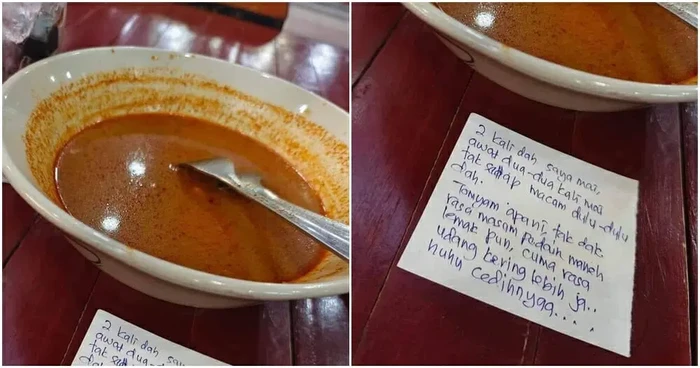 2 kali dah saya
awat dua-dua k
2 kali dah saya mai,
awat dua-dua kali mai
tak sedap macam dulu-dulu
dah.
Tomyam apa ni, tak dak
rasa masam pedaih maneh
lemak pun, cuma rasa
udang kering lebih ja..
huhu cedihnyaa....